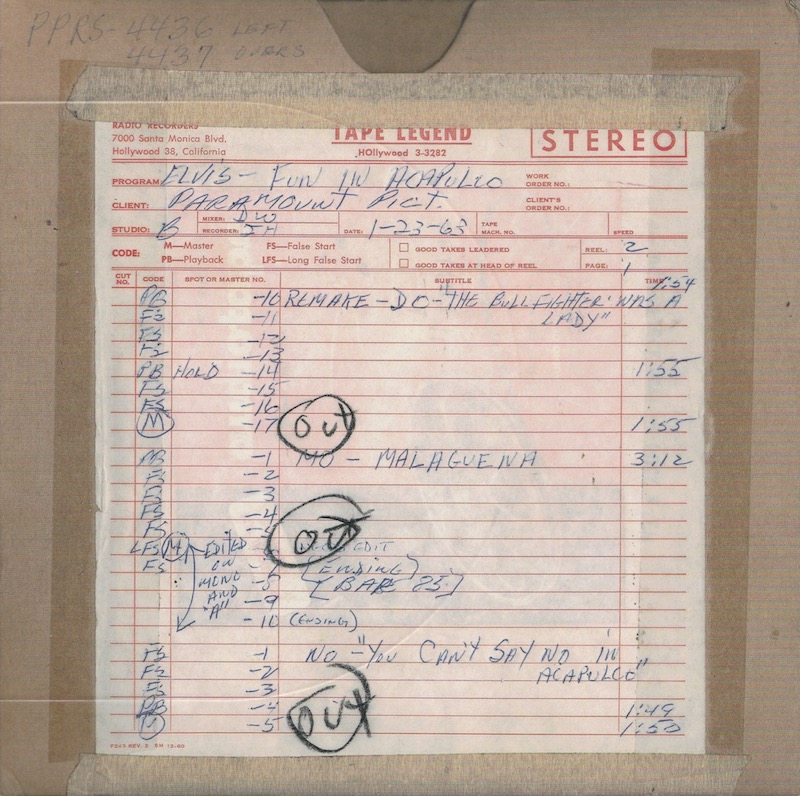 PPRS-4436 LEFT
4437 OVERS
RADIO RECORDERS
7000 Santa Monica Blvd.
Hollywood 38, California
TAPE LEGEND
HOllywood 3-3282
STEREO
PROGRAM: ELVIS - FUN IN ACAPULCO
WORK ORDER NO.:
CLIENT: PARAMOUNT PICT.
CLIENT'S ORDER NO.:
STUDIO: B
MIXER: DW
RECORDER: IH
DATE: 1-23-63
TAPE MACH. NO.
SPEED
CODE: M—Master FS—False Start
PB—Playback LFS—Long False Start
GOOD TAKES LEADERED
GOOD TAKES AT HEAD OF REEL
REEL: 2
PAGE: 1
CUT NO. CODE SPOT OR MASTER NO. SUBTITLE TIME
1:54
PB -10 REMAKE - DO - "THE BULLFIGHTER WAS A
FS -11 LADY"
FS -12
FS -13
PB HOLD -14 1:55
FS -15
FS -16
M -17 OUT 1:55
-1 MO - MALAGUENA 3:12
FS -2
FS -3
FS -4
FS OUT
LFS M EDITED EDIT
FS ON (ENDING)
MONO -8 (BAR 25)
AND -9
"A" -10 (ENDING)
FS -1 NO - "YOU CAN'T SAY NO IN
FS -2 ACAPULCO"
FS -3
PB -4 OUT 1:49
-5 1:50
F247 REV. 2 5M 12-60